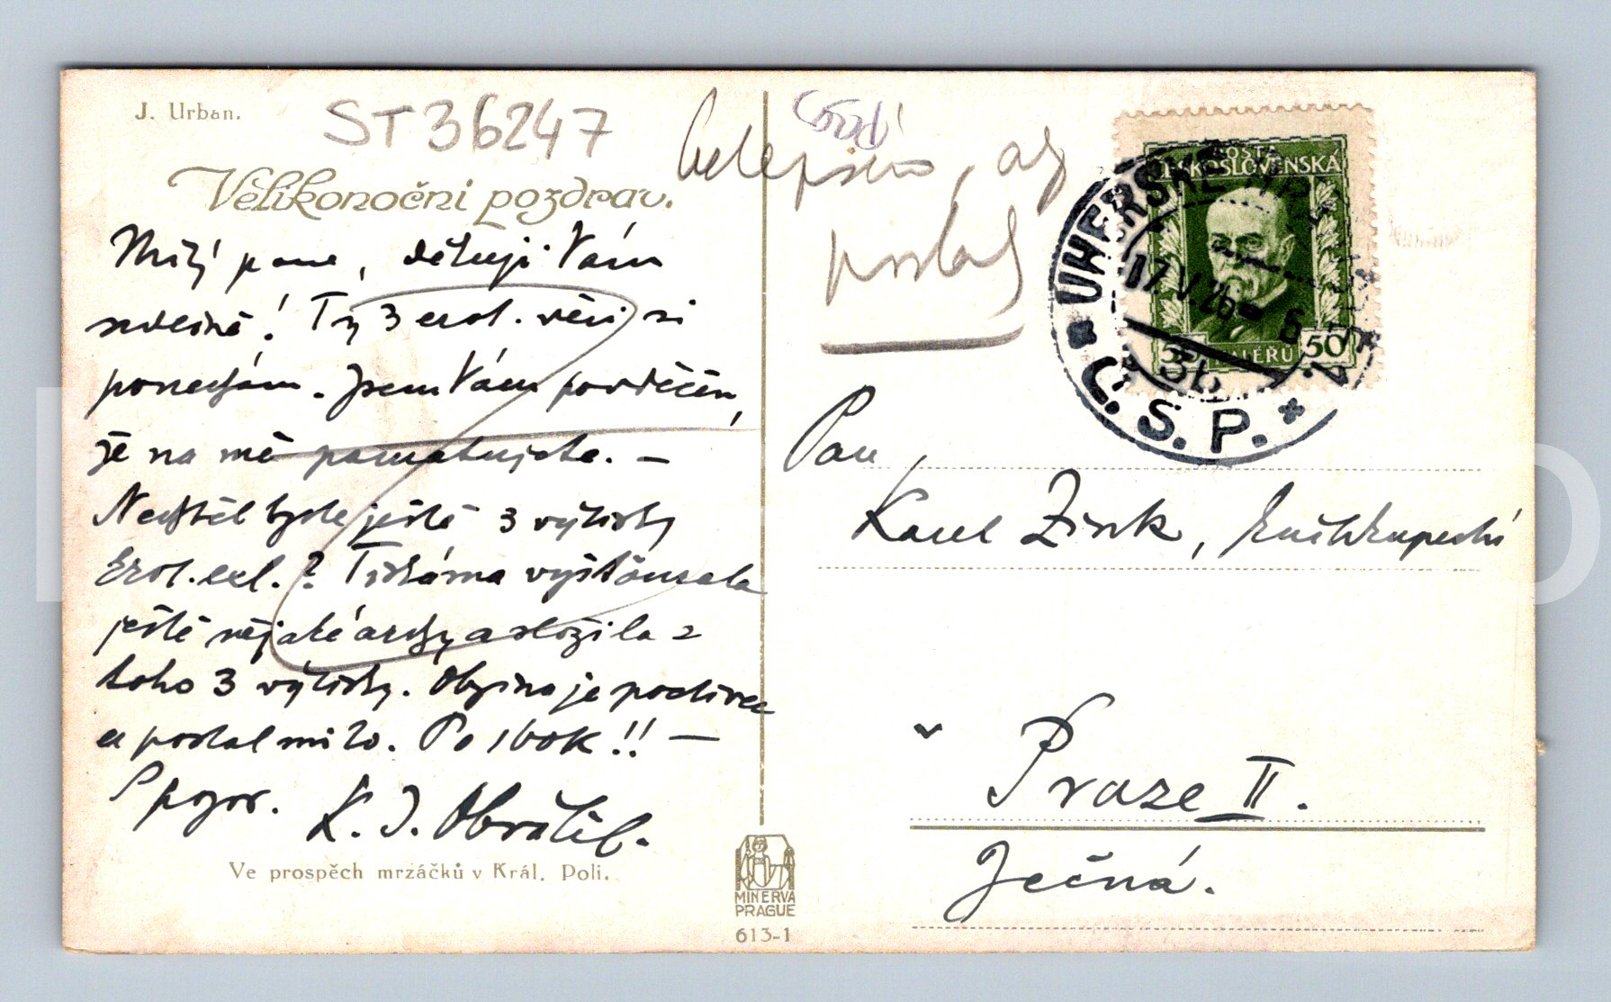 J. Urban.
ST36247
Velikonoční pozdrav.
Milý pane, děkuji Vám
srdečně! Ty 3 erot. věci si
ponechám. Jsem Vám povděčen,
že na mě pamatujete. —
Nechtěl byste ještě 3 výtisky
Erot. exl.? Tiskárna vyšťourala
ještě nějaké archy a složila z
toho 3 výtisky. Obzina je poctivec
a poslal mi to. Po 160K!! —
S pozor. K. J. Obrátil.
Ve prospěch mrzáčků v Král. Poli.
MINERVA
PRAGUE
613-1
poslal
POŠTA
ČESKOSLOVENSKÁ
50 HALÉŘŮ 50
UHERSKÉ
17.V.26-6
3b
Č.S.P.
Pan
Karel Zink, knihkupectví
v Praze II.
Ječná.